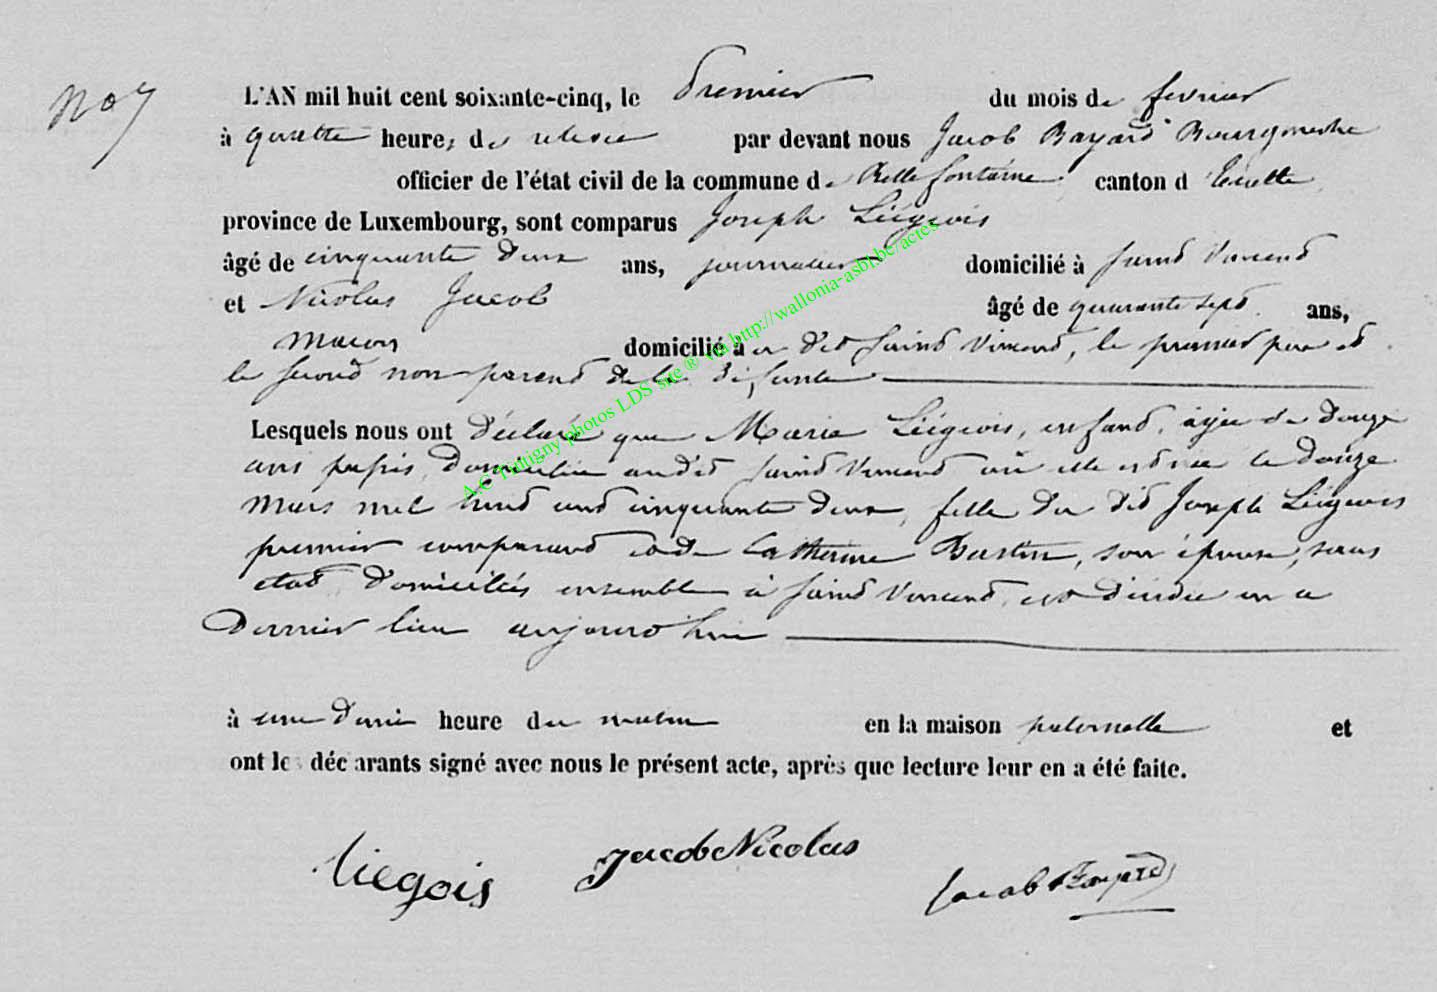 No 7
L'AN mil huit cent soixante-cinq, le premier du mois de fevrier
à quatre heures de relevée par devant nous Jacob Bayard Bourgmestre
officier de l'état civil de la commune de Bellefontaine canton d'Etalle
province de Luxembourg, sont comparus Joseph Liégeois
âgé de cinquante deux ans, journalier domicilié à Saint Vincent
et Nicolas Jacob âgé de quarante sept ans,
macon domicilié à dit Saint Vincent, le premier père et
le second non parent de la défunte
Lesquels nous ont déclaré que Marie Liégeois, enfant, âgée de douze
ans passés, domiciliée audit Saint Vincent où elle est née le douze
Mars mil huit cent cinquante deux, fille du dit Joseph Liégeois
premier comparant et de Catherine Bastin, son épouse, sans
etat domiciliés ensemble à Saint Vincent, est décédée en ce
dernier lieu aujourd'hui
à une demie heure du matin en la maison paternelle et
ont les déclarants signé avec nous le présent acte, après que lecture leur en a été faite.
Liegois Jacob Nicolas Jacob Bayard
A.C Tintigny photos LDS site ® via http://wallonia-asbl.be/actes